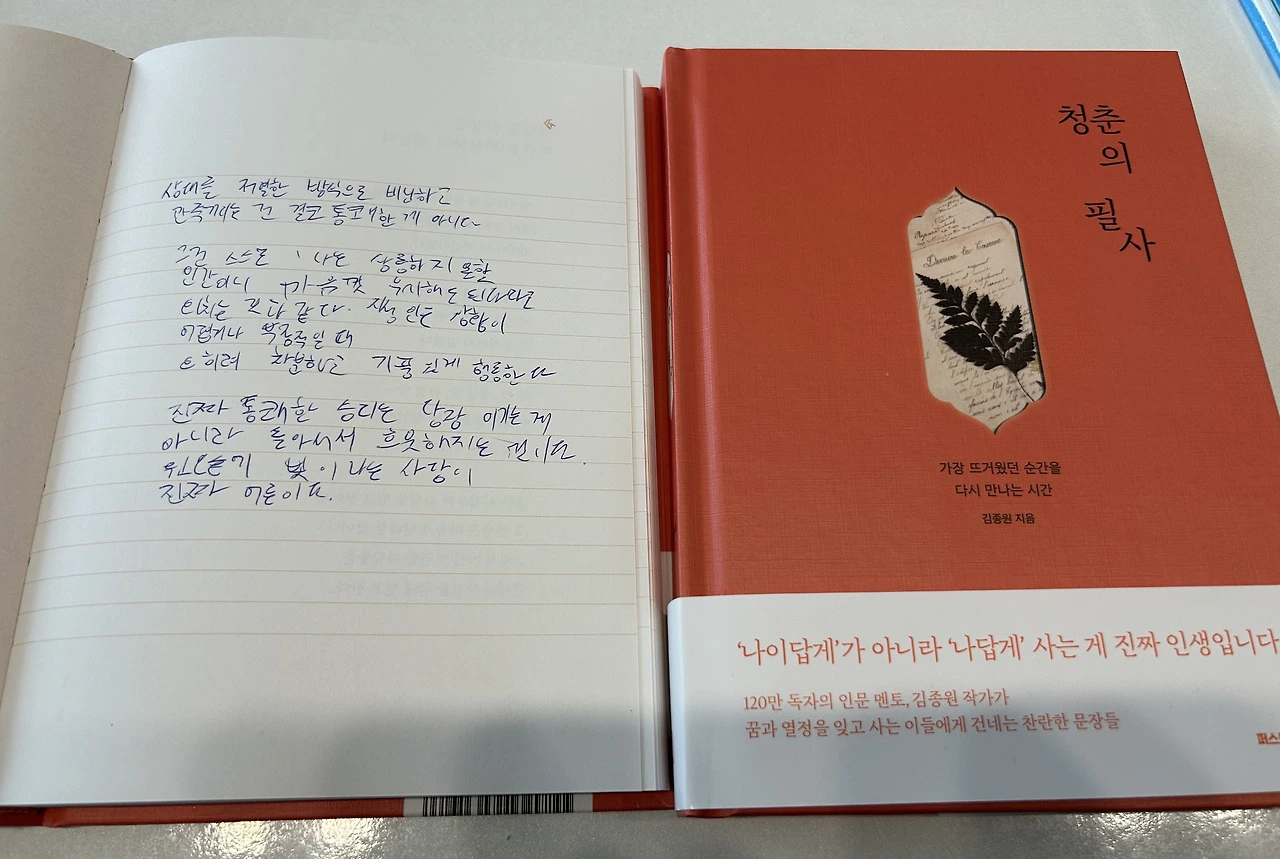 상대를 저열한 방식으로 비난하고
깎아내리는 건 결코 통쾌한 게 아니다
그건 스스로 나는 상륭하지 못한
인간이니 마음껏 무시해도 된다라고
외치는 것과 같다. 지성인은 상황이
어렵거나 부정적일 때
오히려 차분하고 기품 있게 행동한다
진짜 통쾌한 승리는 당장 이기는 게
아니라 돌아서서 흐뭇해지는 것이다.
뒷모습이 빛이 나는 사람이
진짜 어른이다.
청춘
의
필
사
가장 뜨거웠던 순간을
다시 만나는 시간
김종원 지음
‘나이답게’가 아니라 ‘나답게’ 사는 게 진짜 인생입니다
120만 독자의 인문 멘토, 김종원 작가가
꿈과 열정을 잊고 사는 이들에게 건네는 찬란한 문장들